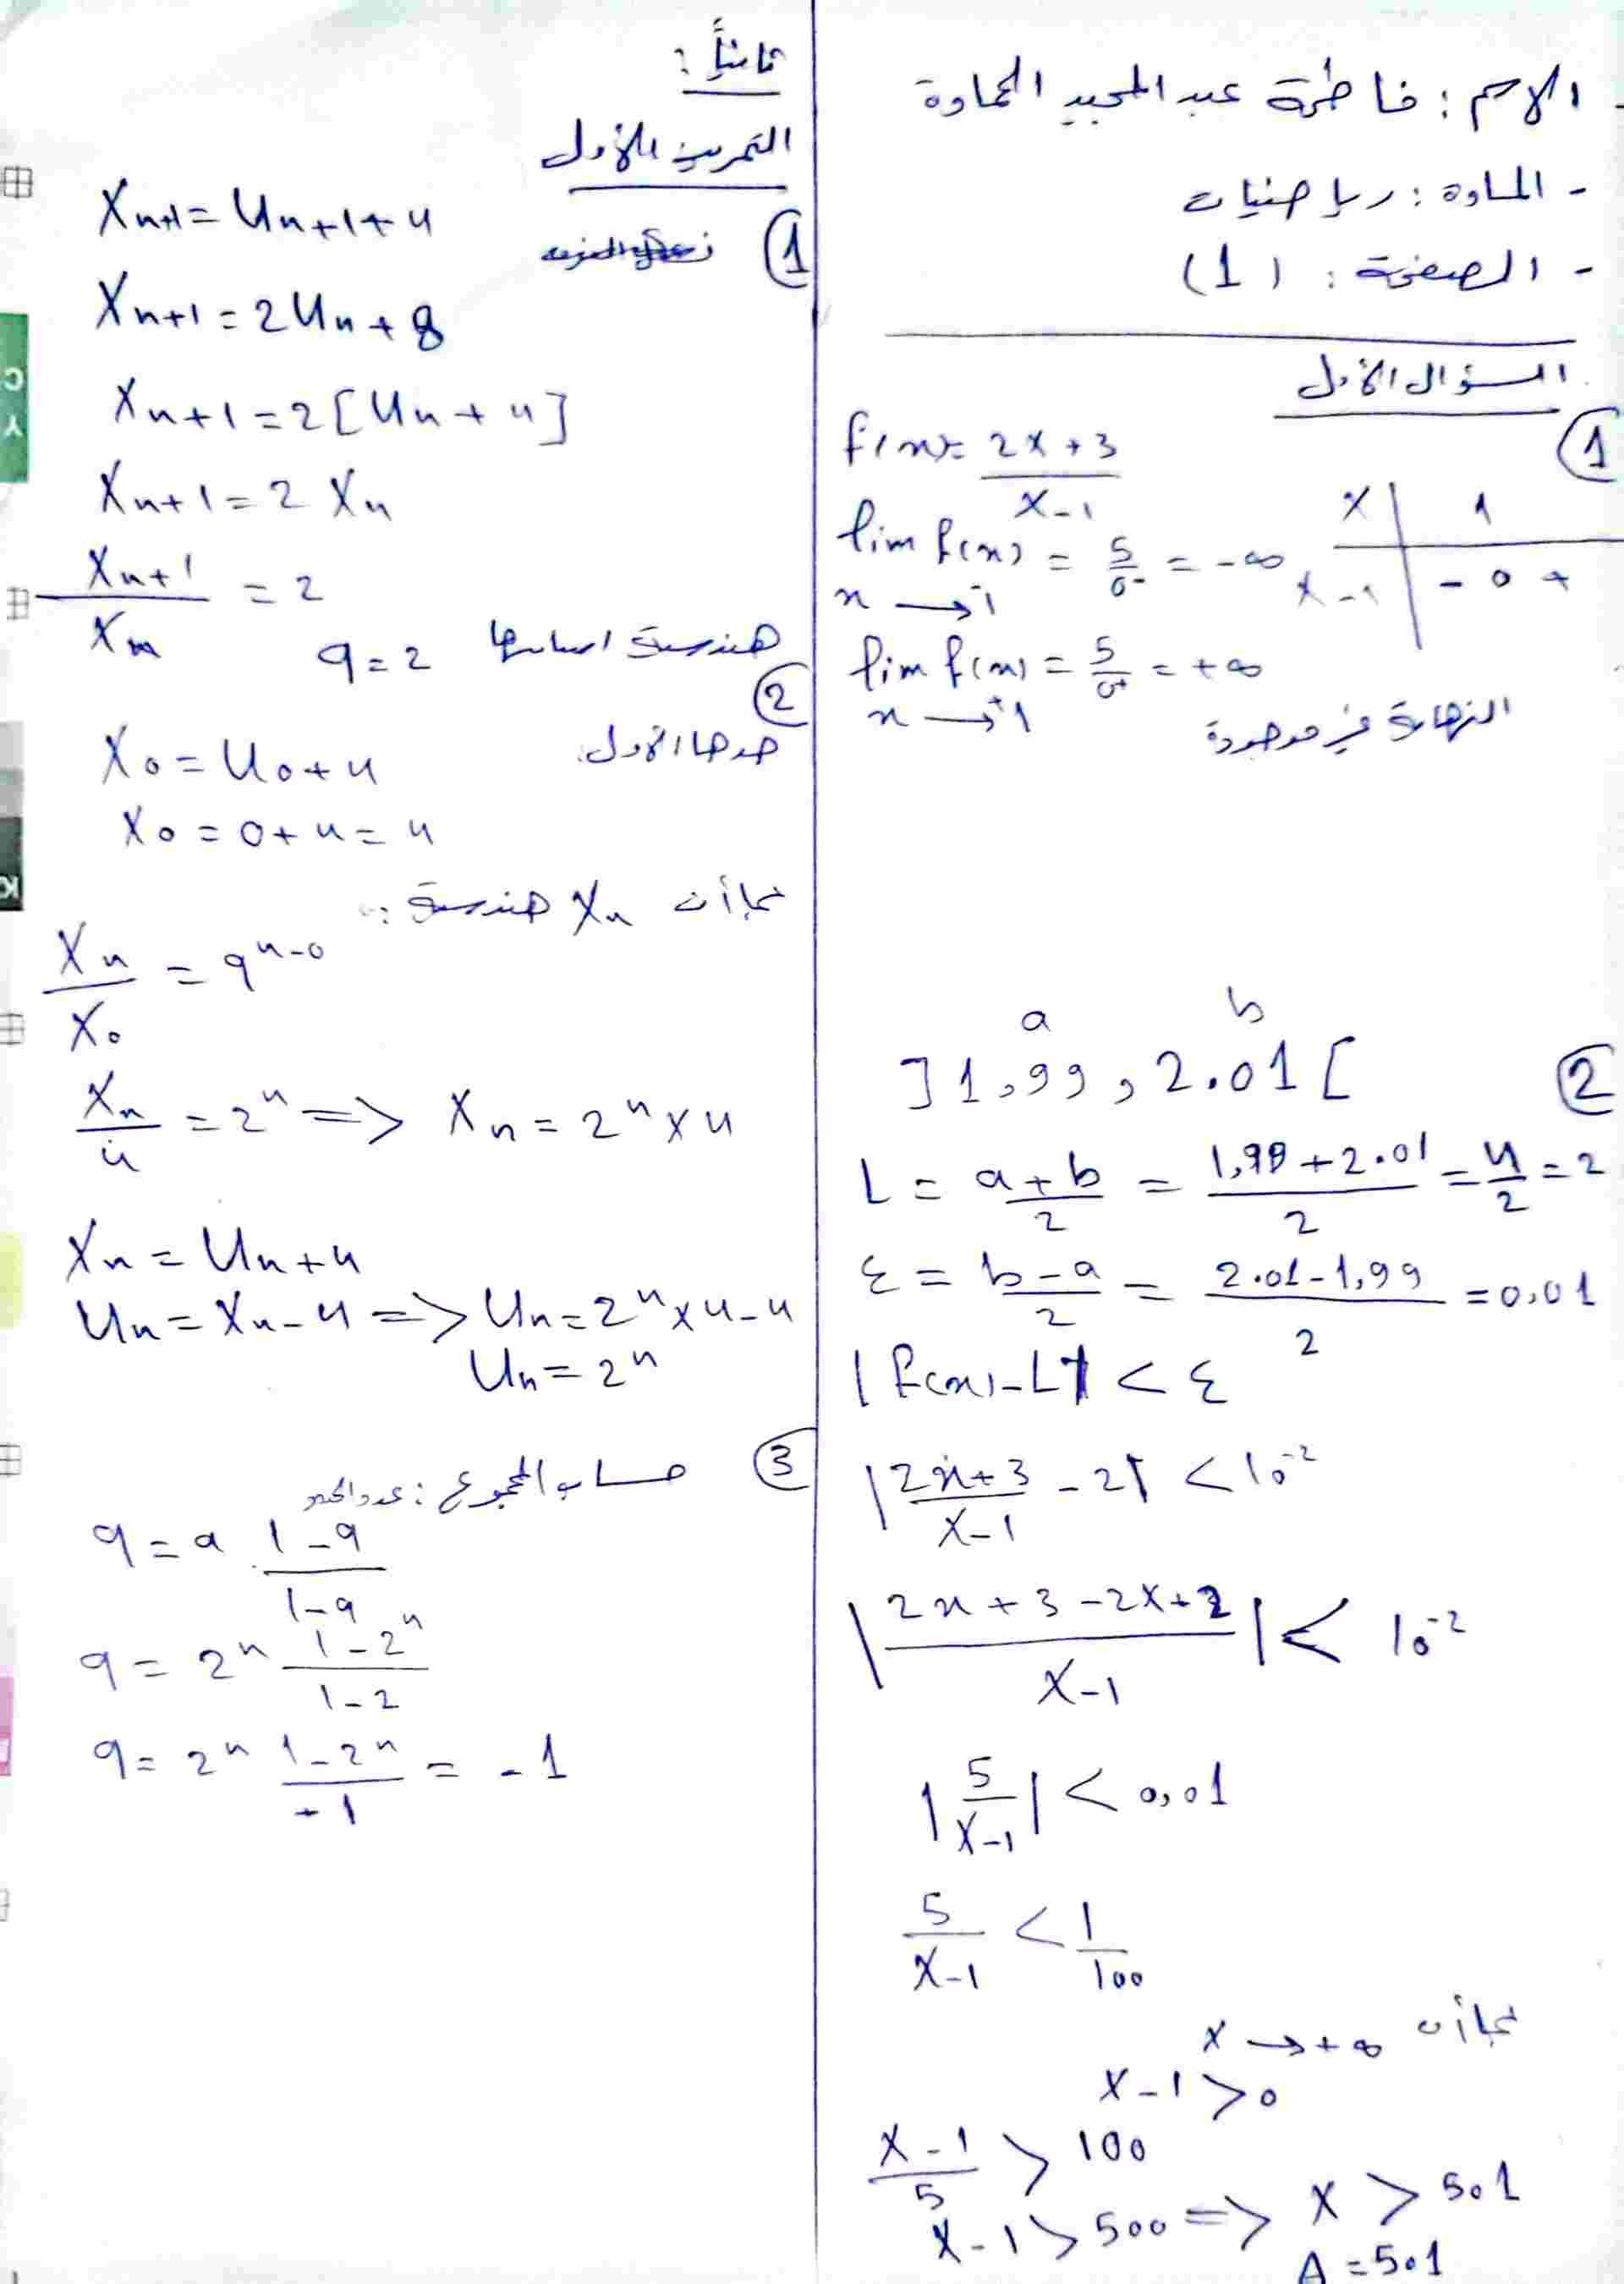 الاسم : فاطمة عبد المجيد الحمادة
- المادة : رياضيات
- الصفحة : (1)
السؤال الأول
①
f(x) = \frac{2x+3}{x-1}
x | 1
x-1 | - 0 +
lim f(x) = \frac{5}{0^-} = -∞
x → 1^-
lim f(x) = \frac{5}{0^+} = +∞
x → 1^+
النهاية غير موجودة
②
a b
]1,99 , 2.01[
L = \frac{a+b}{2} = \frac{1,99+2.01}{2} = \frac{4}{2} = 2
ε = \frac{b-a}{2} = \frac{2.01-1,99}{2} = 0,01
|f(x)-L| < ε
|\frac{2x+3}{x-1} - 2| < 10^{-2}
|\frac{2x+3-2x+2}{x-1}| < 10^{-2}
|\frac{5}{x-1}| < 0,01
\frac{5}{x-1} < \frac{1}{100}
بما أن x → +∞
x-1 > 0
\frac{x-1}{5} > 100
x-1 > 500 => x > 501
A = 501
ثانياً :
التمرين الأول
①
X_{n+1} = U_{n+1} + 4
X_{n+1} = 2U_n + 8
X_{n+1} = 2[U_n + 4]
X_{n+1} = 2 X_n
\frac{X_{n+1}}{X_n} = 2
هندسية اساسها q = 2
②
حدها الأول
X_0 = U_0 + 4
X_0 = 0 + 4 = 4
بما أن X_n هندسية :
\frac{X_n}{X_0} = q^{n-0}
\frac{X_n}{4} = 2^n => X_n = 2^n × 4
X_n = U_n + 4
U_n = X_n - 4 => U_n = 2^n × 4 - 4
U_n = 2^n
③ حساب المجموع : عدد الحد
q = a . \frac{1-q}{1-q}
q = 2^n \frac{1-2^n}{1-2}
q = 2^n \frac{1-2^n}{+1} = -1